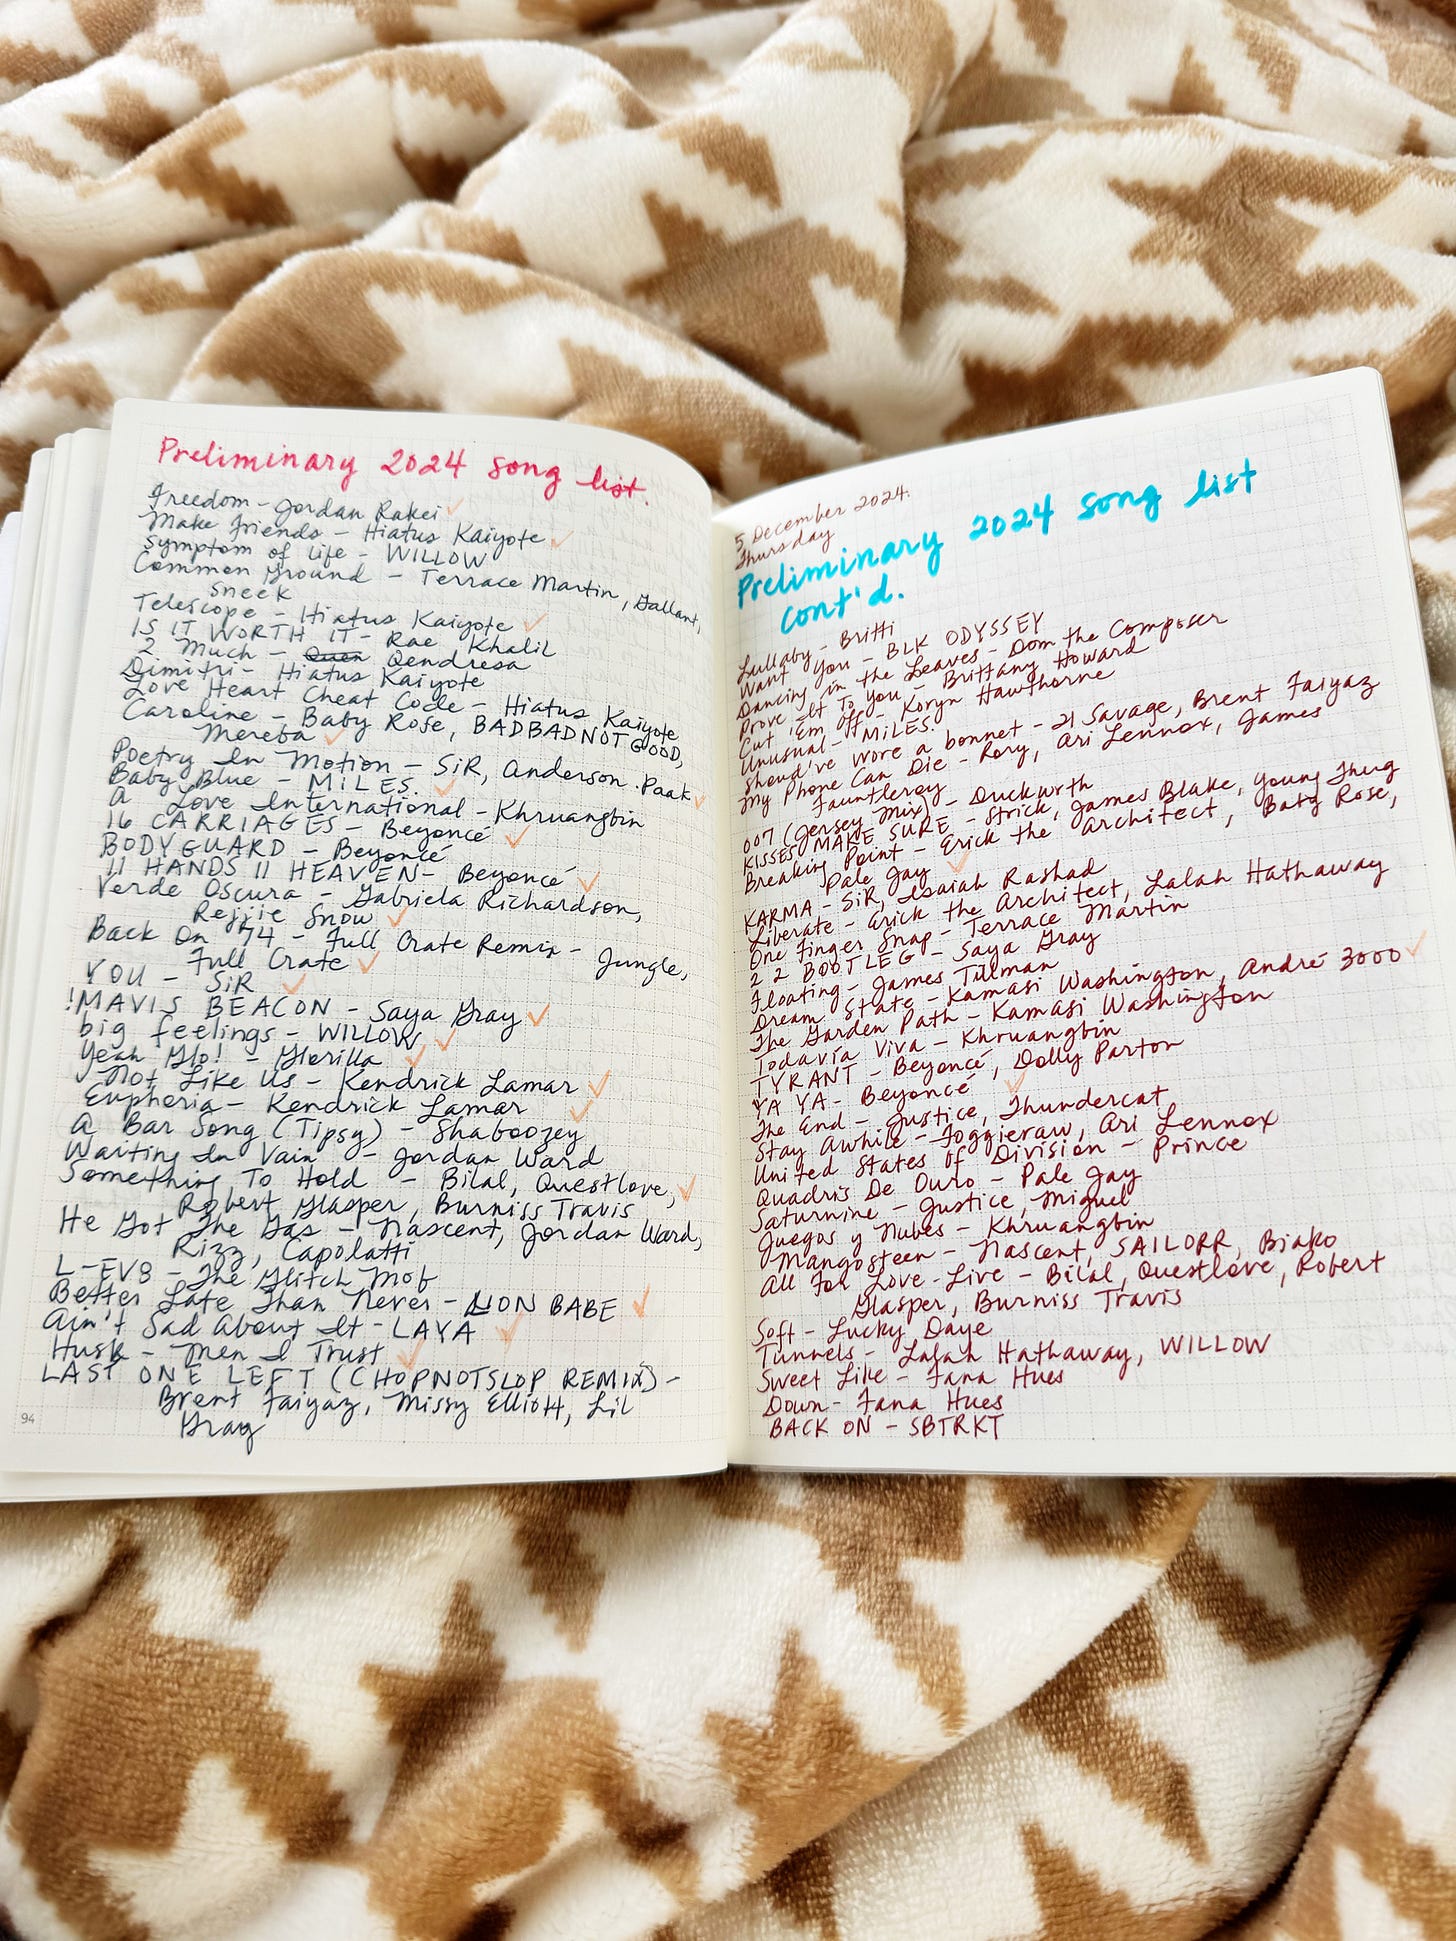 Preliminary 2024 song list.
Freedom - Jordan Rakei ✓
Make Friends - Hiatus Kaiyote ✓
symptom of life - WILLOW
Common Ground - Terrace Martin, Gallant,
sneek
Telescope - Hiatus Kaiyote ✓
IS IT WORTH IT - Rae Khalil
2 Much - Quen Qendresa
Dimitri - Hiatus Kaiyote
Love Heart Cheat Code - Hiatus Kaiyote
Caroline - Baby Rose, BADBADNOTGOOD,
Mereba ✓
Poetry In Motion - SiR, Anderson .Paak ✓
Baby Blue - MiLES. ✓
A Love International - Khruangbin
16 CARRIAGES - Beyoncé ✓
BODYGUARD - Beyoncé
II HANDS II HEAVEN - Beyoncé ✓
Verde Oscura - Gabriela Richardson,
Rejjie Snow ✓
Back On 74 - Full Crate Remix - Jungle,
Full Crate ✓
YOU - SiR ✓
!MAVIS BEACON - Saya Gray ✓
big feelings - WILLOW ✓
Yeah Glo! - Glorilla ✓ ✓
Not Like Us - Kendrick Lamar ✓
Euphoria - Kendrick Lamar ✓
A Bar Song (Tipsy) - Shaboozey
Waiting In Vain - Jordan Ward
Something To Hold - Bilal, Questlove, ✓
Robert Glasper, Burniss Travis
He Got The Gas - Nascent, Jordan Ward,
Rizz, Capolatti
L-EV8 - The Glitch Mob
Better Late Than Never - LION BABE ✓
Ain't Sad About It - LAYA ✓
Husk - Men I Trust ✓
LAST ONE LEFT (CHOPNOTSLOP REMIX) -
Brent Faiyaz, Missy Elliott, Lil
Gray
94
5 December 2024.
Thursday
Preliminary 2024 song list
cont'd.
Lullaby - Britti
Want You - BLK ODYSSEY
Dancing in the Leaves - Dom the Composer
Prove It To You - Brittany Howard
Cut 'Em Off - Koryn Hawthorne
Unusual - MiLES.
should've wore a bonnet - 21 Savage, Brent Faiyaz
My Phone Can Die - Rory, Ari Lennox, James
Fauntleroy
007 (Jersey Mix) - Duckwrth
KISSES MAKE SURE - Strick, James Blake, Young Thug
Breaking Point - Erick the Architect, Baby Rose,
Pale Jay ✓
KARMA - SiR, Isaiah Rashad
Liberate - Erick the Architect, Lalah Hathaway
One Finger Snap - Terrace Martin
2 2 BOOTLEG - Saya Gray
Floating - James Tillman
Dream State - Kamasi Washington, André 3000 ✓
The Garden Path - Kamasi Washington
Todavía Viva - Khruangbin
TYRANT - Beyoncé, Dolly Parton
YA YA - Beyoncé ✓
The End - Justice, Thundercat
Stay Awhile - Foggieraw, Ari Lennox
United States of Division - Prince
Quadris De Ouro - Pale Jay
Saturnine - Justice, Miguel
Juegos y Nubes - Khruangbin
Mangosteen - Nascent, SAILORR, Binko
All For Love - Live - Bilal, Questlove, Robert
Glasper, Burniss Travis
Soft - Lucky Daye
Tunnels - Lalah Hathaway, WILLOW
Sweet Like - Fana Hues
Down - Fana Hues
BACK ON - SBTRKT